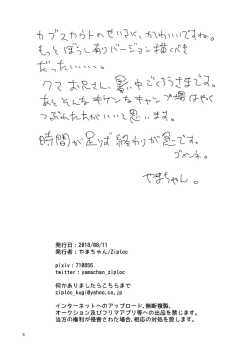 カブスカウトのせいふく、かわいいですね。
もっとぼうしありバージョン描くべき
だったぃぃぃぃ。
クマ お兄さん、暑い中ごくろうさまです。
あとそんなキケンなキャンプ場はやく
つぶれた方がいいと思います。
時間が足りず 終わりが急です。
ゴメンネ。
やまちゃん。
発行日：2018/08/11
発行者：やまちゃん/Ziploc
pixiv：710856
twitter：yamachan_ziploc
何かありましたらこちらまで
ziploc_kugi@yahoo.co.jp
インターネットへのアップロード、無断複製、
オークション及びフリマアプリ等への出品を禁じます。
当方の権利が侵害された場合、相応の対処を致します。